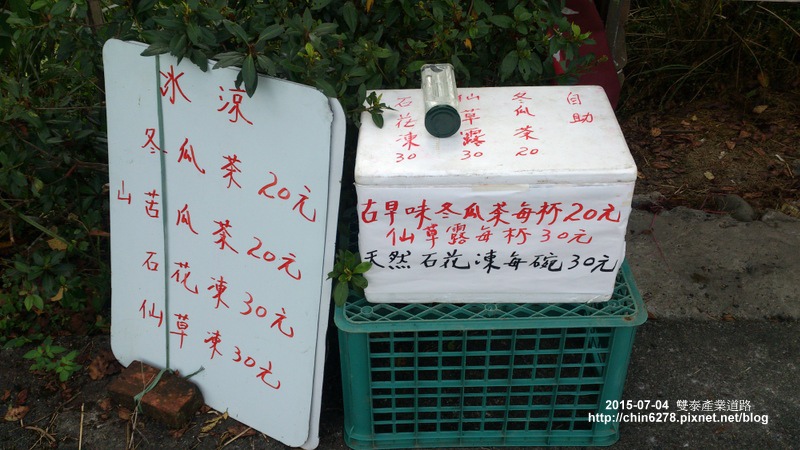 冰涼
冬瓜茶20元
山苦瓜茶20元
石花凍30元
仙草凍30元
自助
冬瓜茶20
仙草露30
石花凍30
古早味冬瓜茶每杯20元
仙草露每杯30元
天然石花凍每碗30元
2015-07-04 雙泰產業道路
http://chin6278.pixnet.net/blog